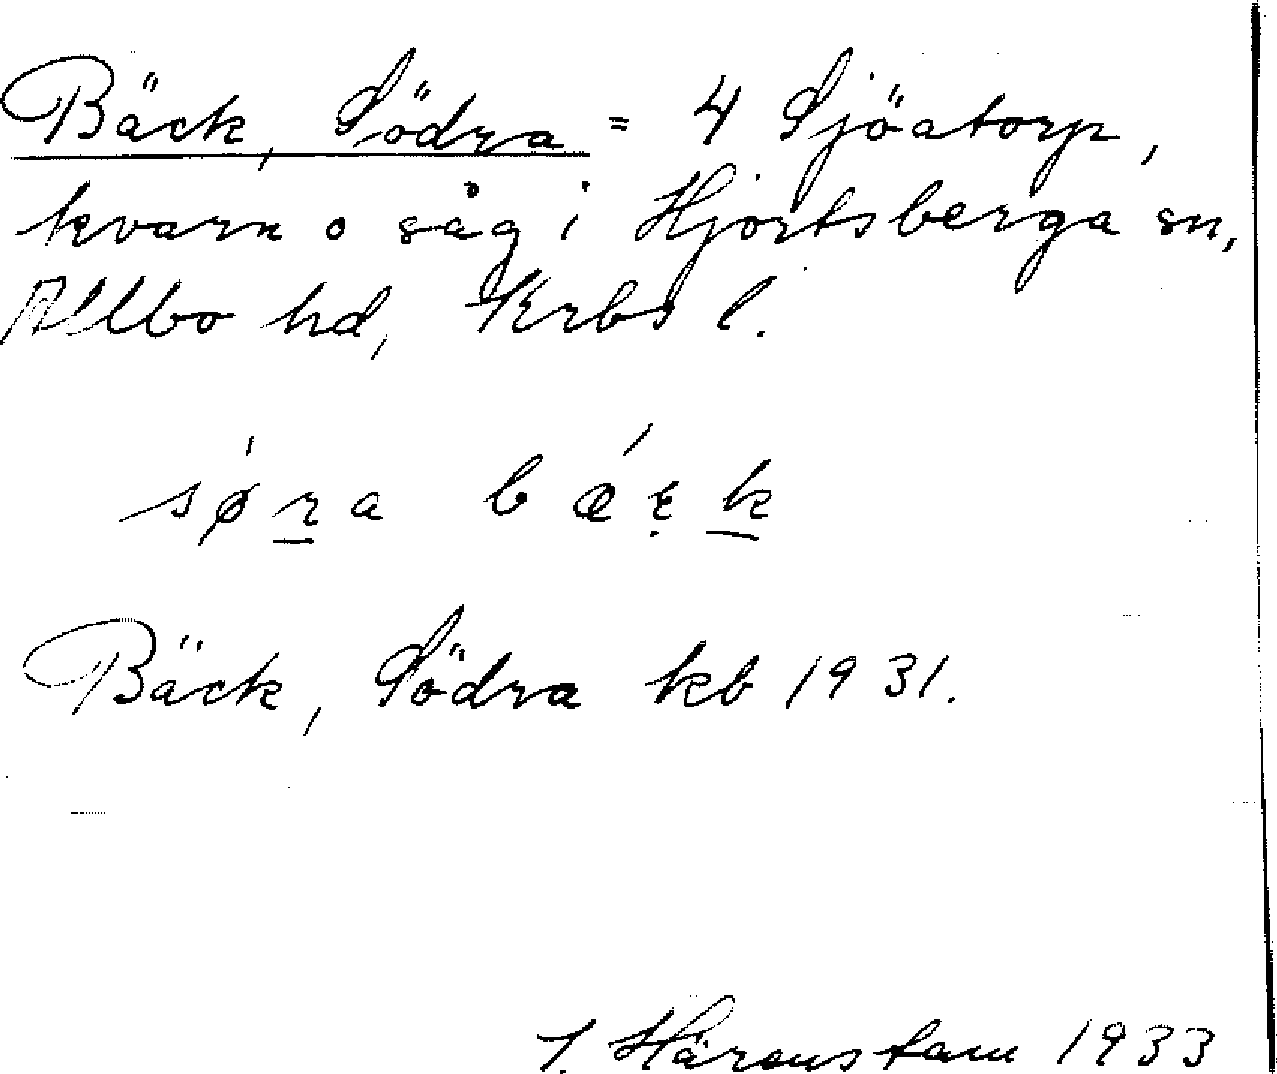 Bäck, Södra = 4 Sjöatorp,
kvarn o såg i Hjortsberga sn,
Allbo hd, Krbs l.
sǿra b k
Bäck, Södra kb 1931.
1933